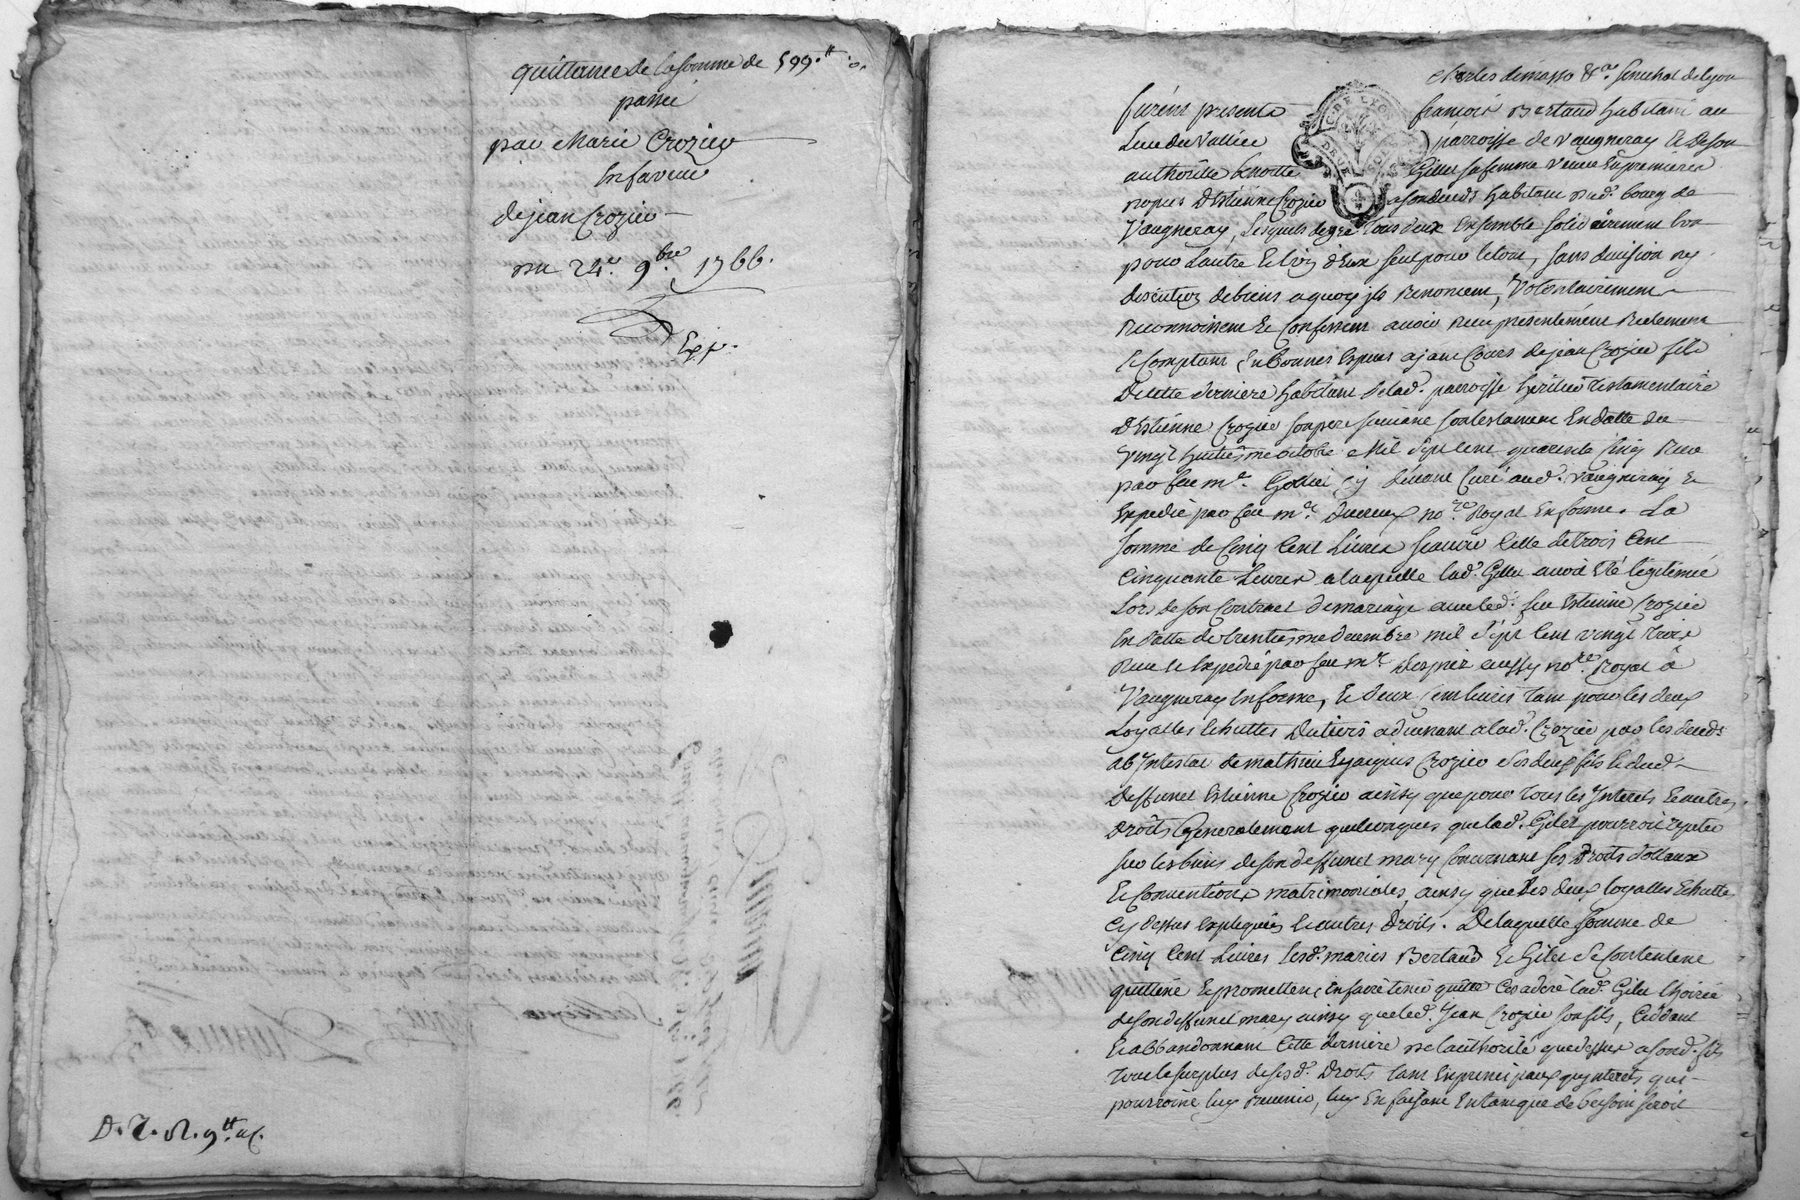 quittance de la somme de 599.tt
passée
par Marie Crozier
en faveur
de jean Crozier
du 24.e 9.bre 1766.
Exp.
D. 9.tt
charles demasso &.a senechal de lyon
furent presents françois Bertaud habitant au
Lieu du Vallier parroisse de Vaugneray et de son
authorité benoitte Gillet sa femme veuve en premieres
nopces d'Estienne Crozier habitant aud. bourg de
Vaugneray, Lesquels de gré tous deux Ensemble solidairement l'un
pour L'autre et l'un d'Eux seul pour le tout, sans division ny
discution de biens a quoy ils Renoncent, Volontairement
Reconnoissent et Confessent avoir Reçu presentement Reelement
et Comptant En bonnes Especes ayant Cours de jean Crozier fils
De cette derniere habitant delad. parroisse heritier testamentaire
D'Estienne Crozier son pere suivant son testament En datte du
vingt huitieme octobre Mil Sept cent quarente Cinq Reçu
par feu m.e vivant Curé aud. Vaugneray et
Expedié par feu m.e no.re Royal En forme. La
somme de Cinq Cent Livres scavoir Celle de trois Cent
Cinquante Livres a laquelle lad. Gillet avoit Eté legitimée
Lors de son Contract de mariage avec led. feu Estienne Crozier
En datte du trentieme decembre mil Sept Cent vingt trois
Reçu et Expedié par feu m.e aussy no.re Royal à
Vaugneray En forme, et deux Cent livres tant pour les deux
Loyalles Echuttes adVenant a lad. par les deceds
ab Intestat de mathieu Et jacques Crozier ses deux fils et dud.
Deffunct Estienne Crozier ainsy que pour tous les Interets Et autres
Droits Generalement quelconques que lad. Gillet pourroit repeter
sur les biens de son deffunct mary Concernant ses Droits dottaux
Et Conventions matrimoniales, ainsy que des deux loyalles Echuttes
Cy dessus expliquées et autres Droits. De laquelle somme de
Cinq Cent Livres lesd. mariés Bertaud Et Gillet se Contentent
quittent et promettent En faire tenir quitte lad. Gillet l'hoirie
de son deffunct mary ainsy que led. Jean Crozier son fils, Ceddant
Et abbandonnant Cette derniere de l'authorité que dessus a sond. fils
tout le surplus de sesd. Droits tant En principaux qu'interets qui
pourroient luy Revenir, luy En faisant En tant que de besoin seroit